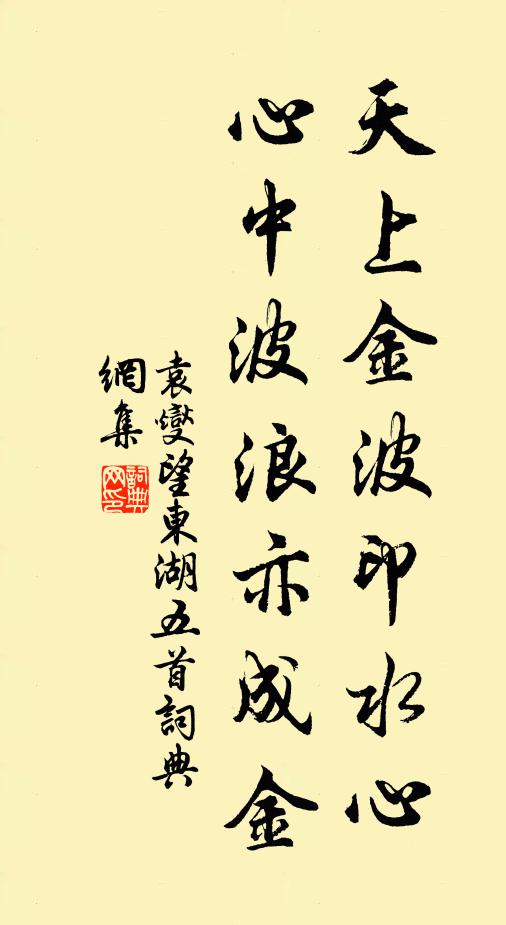 天上金波印水心
心中波浪亦成金
袁燮望東湖五首詞典
網集
詞典
网印